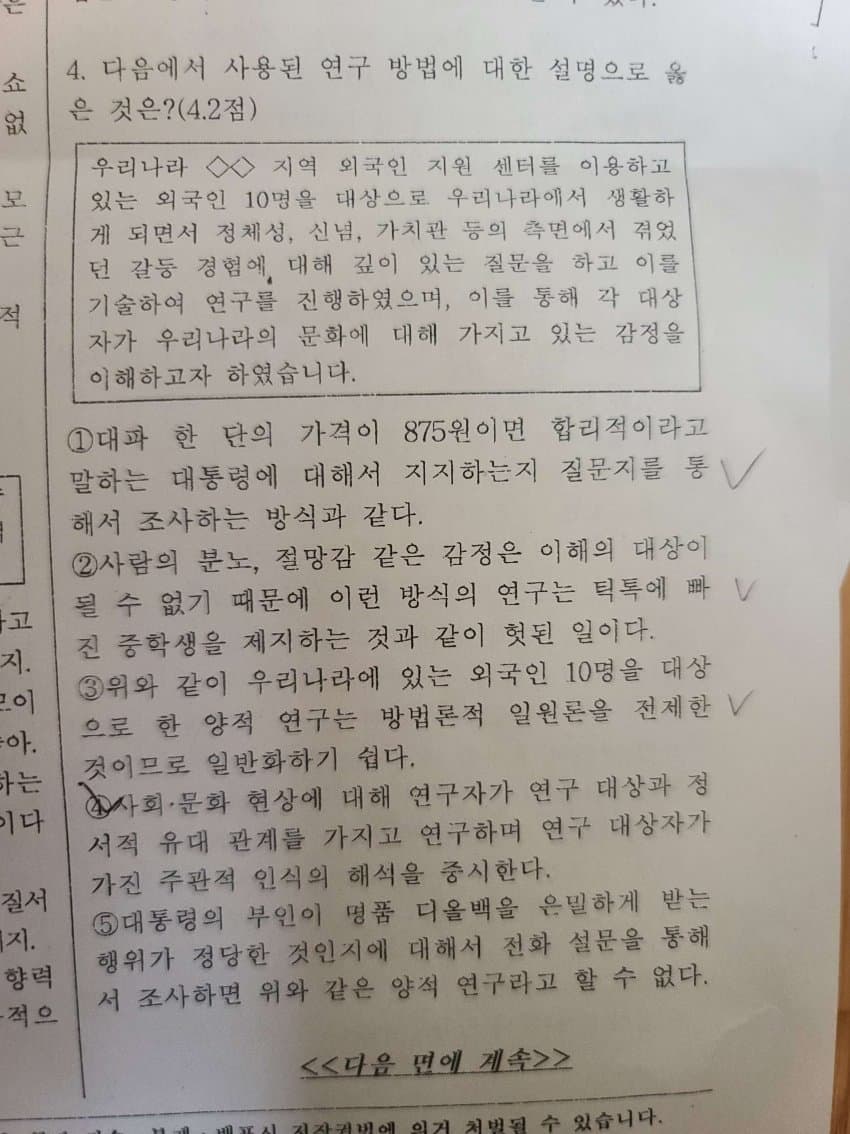 4. 다음에서 사용된 연구 방법에 대한 설명으로 옳
은 것은?(4.2점)
우리나라 ◇◇ 지역 외국인 지원 센터를 이용하고
있는 외국인 10명을 대상으로 우리나라에서 생활하
게 되면서 정체성, 신념, 가치관 등의 측면에서 겪었
던 갈등 경험에 대해 깊이 있는 질문을 하고 이를
기술하여 연구를 진행하였으며, 이를 통해 각 대상
자가 우리나라의 문화에 대해 가지고 있는 감정을
이해하고자 하였습니다.
①대파 한 단의 가격이 875원이면 합리적이라고
말하는 대통령에 대해서 지지하는지 질문지를 통
해서 조사하는 방식과 같다.
②사람의 분노, 절망감 같은 감정은 이해의 대상이
될 수 없기 때문에 이런 방식의 연구는 틱톡에 빠
진 중학생을 제지하는 것과 같이 헛된 일이다.
③위와 같이 우리나라에 있는 외국인 10명을 대상
으로 한 양적 연구는 방법론적 일원론을 전제한
것이므로 일반화하기 쉽다.
④사회·문화 현상에 대해 연구자가 연구 대상과 정
서적 유대 관계를 가지고 연구하며 연구 대상자가
가진 주관적 인식의 해석을 중시한다.
⑤대통령의 부인이 명품 디올백을 은밀하게 받는
행위가 정당한 것인지에 대해서 전화 설문을 통해
서 조사하면 위와 같은 양적 연구라고 할 수 없다.
<<다음 면에 계속>>
저작권법에 의거 처벌될 수 있습니다.
쇼
없
모
근
적
하고
지.
하는
이다
질서
지.
향력
적으